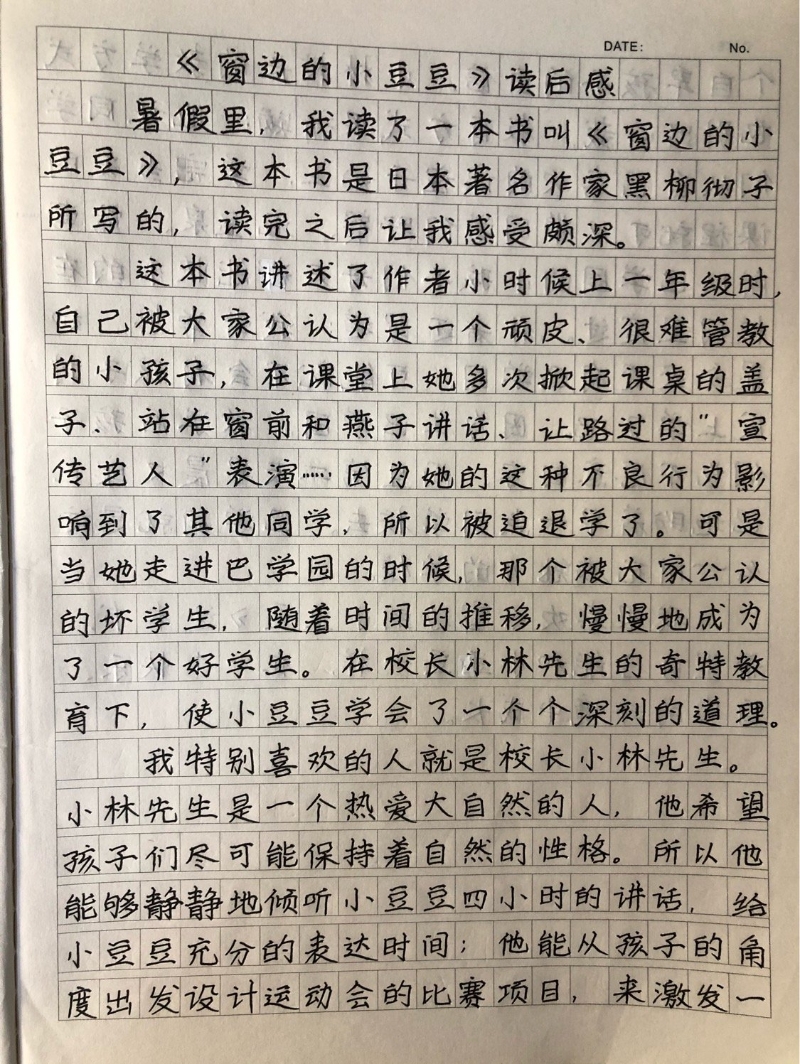 DATE: No.
《窗边的小豆豆》读后感
暑假里，我读了一本书叫《窗边的小
豆豆》，这本书是日本著名作家黑柳彻子
所写的，读完之后让我感受颇深。
这本书讲述了作者小时候上一年级时，
自己被大家公认为是一个顽皮、很难管教
的小孩子，在课堂上她多次掀起课桌的盖
子、站在窗前和燕子讲话、让路过的“宣
传艺人”表演……因为她的这种不良行为影
响到了其他同学，所以被迫退学了。可是
当她走进巴学园的时候，那个被大家公认
的坏学生，随着时间的推移，慢慢地成为
了一个好学生。在校长小林先生的奇特教
育下，使小豆豆学会了一个个深刻的道理。
我特别喜欢的人就是校长小林先生。
小林先生是一个热爱大自然的人，他希望
孩子们尽可能保持着自然的性格。所以他
能够静静地倾听小豆豆四小时的讲话，给
小豆豆充分的表达时间；他能从孩子的角
度出发设计运动会的比赛项目，来激发一